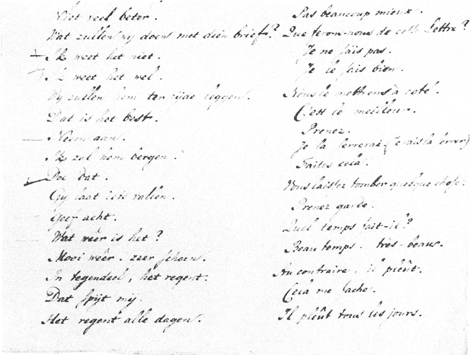 Niet veel beter.
Wat zullen wy doen met dien brief?
Ik weet het niet.
Ik weet het wel.
Wy zullen hem ter zijde leggen.
Dat is het best.
Neem aan.
Ik zal hem bergen.
Doe dat.
Gy laat iets vallen.
Geef acht.
Wat wêer is het?
Mooi wêer. zeer schoon.
In tegendeel, het regent.
Dat spijt mij.
Het regent alle dagen.
Pas beaucoup mieux.
Que ferons nous de cette lettre?
Je ne sais pas.
Je le sais bien.
Nous le mettrons à coté.
C'est le meilleur.
Prenez.
Je la serrerai
Faites cela.
Vous laissez tomber quelque chose.
Prenez garde.
Quel temps fait-il?
Beau temps. très-beau.
Au contraire, il pleût.
Cela me fache.
Il pleût tous les jours.